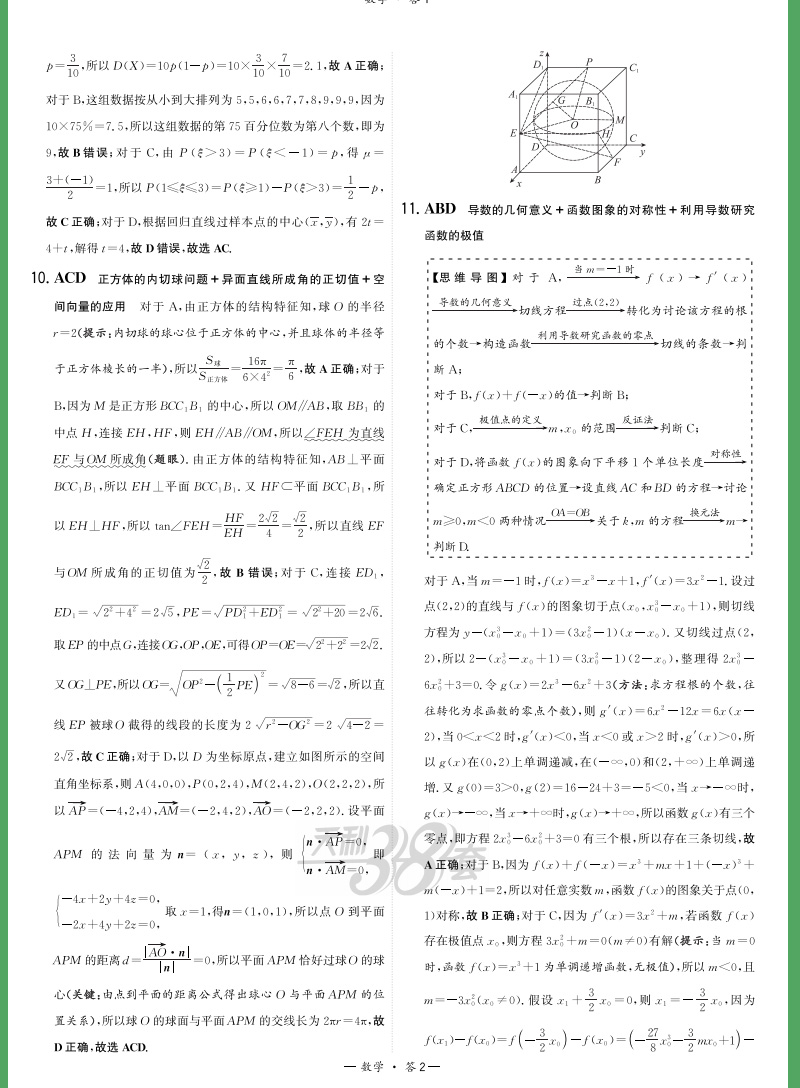 p=3/10,所以 D(X)=10p(1-p)=10×3/10×7/10=2.1,故 A 正确;
对于 B,这组数据按从小到大排列为 5,5,6,6,7,7,8,9,9,9,因为
10×75%=7.5,所以这组数据的第 75 百分位数为第八个数,即为
9,故 B 错误;对于 C,由 P(ξ>3)=P(ξ<-1)=p,得 μ=
(3+(-1))/2=1,所以 P(1≤ξ≤3)=P(ξ≥1)-P(ξ>3)=1/2-p,
故 C 正确;对于 D,根据回归直线过样本点的中心(x̄,ȳ),有 2t=
4+t,解得 t=4,故 D 错误,故选 AC.
10. ACD 正方体的内切球问题+异面直线所成角的正切值+空
间向量的应用 对于 A,由正方体的结构特征知,球 O 的半径
r=2(提示:内切球的球心位于正方体的中心,并且球体的半径等
于正方体棱长的一半),所以S球/S正方体=16π/(6×4²)=π/6,故 A 正确;对于
B,因为 M 是正方形 BCC₁B₁ 的中心,所以 OM∥AB,取 BB₁ 的
中点 H,连接 EH,HF,则 EH∥AB∥OM,所以∠FEH 为直线
EF 与 OM 所成角(题眼).由正方体的结构特征知,AB⊥平面
BCC₁B₁,所以 EH⊥平面 BCC₁B₁.又 HF⊂平面 BCC₁B₁,所
以 EH⊥HF,所以 tan∠FEH=HF/EH=2√2/4=√2/2,所以直线 EF
与OM 所成角的正切值为√2/2,故 B 错误;对于 C,连接 ED₁,
ED₁=√(2²+4²)=2√5,PE=√(PD₁²+ED₁²)=√(2²+20)=2√6.
取EP 的中点G,连接OG,OP,OE,可得OP=OE=√(2²+2²)=2√2.
又OG⊥PE,所以OG=√(OP²-(1/2PE)²)=√(8-6)=√2,所以直
线 EP 被球O 截得的线段的长度为 2√(r²-OG²)=2√(4-2)=
2√2,故 C 正确;对于 D,以 D 为坐标原点,建立如图所示的空间
直角坐标系,则 A(4,0,0),P(0,2,4),M(2,4,2),O(2,2,2),所
以 AP→=(-4,2,4),AM→=(-2,4,2),AO→=(-2,2,2).设平面
APM 的法向量为 n=(x,y,z),则{n·AP→=0, n·AM→=0, 即
{-4x+2y+4z=0, -2x+4y+2z=0, 取 x=1,得n=(1,0,1),所以点 O 到平面
APM 的距离d=|AO→·n|/|n|=0,所以平面 APM 恰好过球O 的球
心(关键:由点到平面的距离公式得出球心 O 与平面 APM 的位
置关系),所以球 O 的球面与平面 APM 的交线长为 2πr=4π,故
D 正确,故选 ACD.
z
D₁ P C₁
A₁ G B₁
O M
E H
D C y
F
A B
x
11. ABD 导数的几何意义+函数图象的对称性+利用导数研究
函数的极值
【思维导图】对于 A, 当 m=-1 时→ f(x)→f′(x)
导数的几何意义→切线方程 过点(2,2)→转化为讨论该方程的根
的个数→构造函数 利用导数研究函数的零点→切线的条数→判
断 A;
对于 B,f(x)+f(-x)的值→判断 B;
对于 C, 极值点的定义→m,x₀ 的范围 反证法→判断 C;
对于 D,将函数 f(x)的图象向下平移 1 个单位长度 对称性→
确定正方形 ABCD 的位置→设直线 AC 和 BD 的方程→讨论
m≥0,m<0 两种情况 OA=OB→关于 k,m 的方程 换元法→m→
判断 D.
对于 A,当 m=-1 时,f(x)=x³-x+1,f′(x)=3x²-1.设过
点(2,2)的直线与 f(x)的图象切于点(x₀,x₀³-x₀+1),则切线
方程为 y-(x₀³-x₀+1)=(3x₀²-1)(x-x₀).又切线过点(2,
2),所以 2-(x₀³-x₀+1)=(3x₀²-1)(2-x₀),整理得 2x₀³-
6x₀²+3=0.令 g(x)=2x³-6x²+3(方法:求方程根的个数,往
往转化为求函数的零点个数),则 g′(x)=6x²-12x=6x(x-
2),当 0<x<2 时,g′(x)<0,当 x<0 或 x>2 时,g′(x)>0,所
以 g(x)在(0,2)上单调递减,在(-∞,0)和(2,+∞)上单调递
增.又 g(0)=3>0,g(2)=16-24+3=-5<0,当 x→-∞时,
g(x)→-∞,当 x→+∞时,g(x)→+∞,所以函数 g(x)有三个
零点,即方程 2x₀³-6x₀²+3=0 有三个根,所以存在三条切线,故
A 正确;对于 B,因为 f(x)+f(-x)=x³+mx+1+(-x)³+
m(-x)+1=2,所以对任意实数 m,函数 f(x)的图象关于点(0,
1)对称,故 B 正确;对于 C,因为 f′(x)=3x²+m,若函数 f(x)
存在极值点 x₀,则方程 3x₀²+m=0(m≠0)有解(提示:当 m=0
时,函数 f(x)=x³+1 为单调递增函数,无极值),所以 m<0,且
m=-3x₀²(x₀≠0).假设 x₁+3/2x₀=0,则 x₁=-3/2x₀,因为
f(x₁)-f(x₀)=f(-3/2x₀)-f(x₀)=(-27/8x₀³-3/2mx₀+1)-
天利38套
— 数学 · 答 2 —